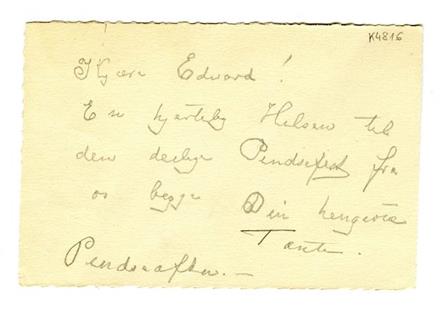 K4816
Kjære Edvard!
En hjertelig Hilsen til
den deilige Pindsefest fra
os begge Din hengivne
Tante.
Pindseaften.—